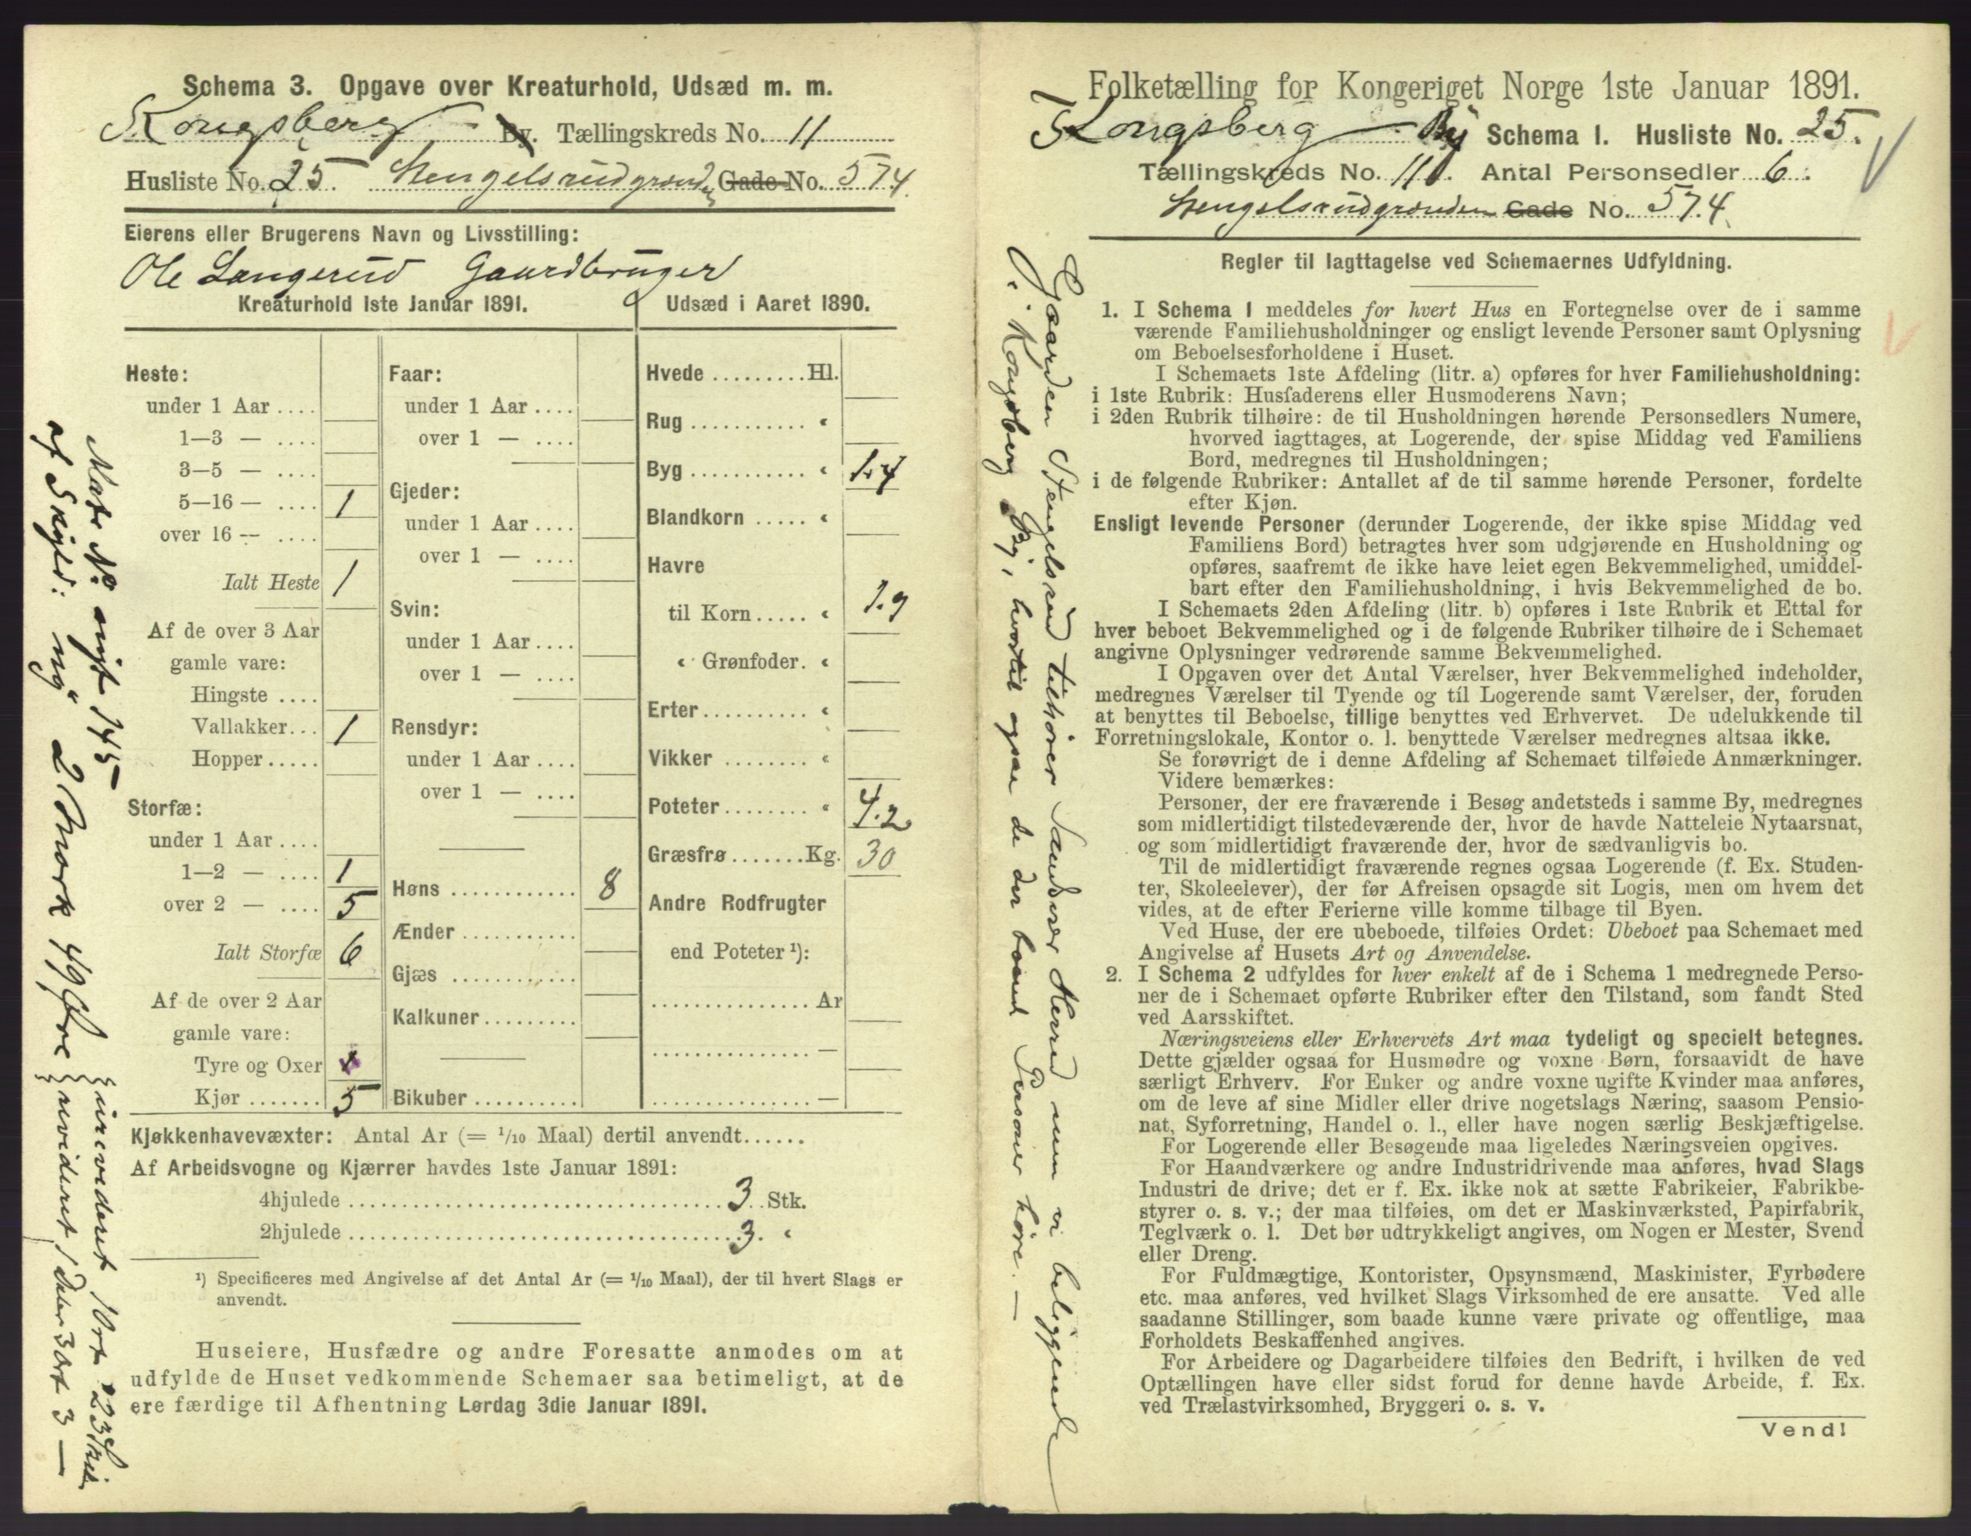 Schema 3. Opgave over Kreaturhold, Udsæd m. m.
Kongsberg By. Tællingskreds No. 11
Husliste No. 25. Stengelsrudgrunden Gade No. 574.
Eierens eller Brugerens Navn og Livsstilling:
Ole Langerud Gaardbruger
Kreaturhold 1ste Januar 1891.
Heste:
under 1 Aar ....
1—3 — ....
3—5 — ....
5—16 — .... 1
over 16 — ....
Ialt Heste 1
Af de over 3 Aar
gamle vare:
Hingste ....
Vallakker... 1
Hopper.....
Storfæ:
under 1 Aar ....
1—2 — .... 1
over 2 — .... 5
Ialt Storfæ 6
Af de over 2 Aar
gamle vare:
Tyre og Oxer
Kjør ....... 5
Faar:
under 1 Aar ....
over 1 — ....
Gjeder:
under 1 Aar ....
over 1 — ....
Svin:
under 1 Aar ....
over 1 — ....
Rensdyr:
under 1 Aar ....
over 1 — ....
Høns ............ 8
Ænder ...........
Gjæs ............
Kalkuner.........
Bikuber ..........
Udsæd i Aaret 1890.
Hvede .........Hl.
Rug ........... "
Byg ........... " 1.4
Blandkorn ..... "
Havre
til Korn ..... " 1.9
" Grønfoder. "
Erter.......... "
Vikker ........ "
Poteter ....... " 4.2
Græsfrø .......Kg. 30
Andre Rodfrugter
end Poteter ¹):
............... Ar
............... —
............... —
Kjøkkenhavevæxter: Antal Ar (= 1/10 Maal) dertil anvendt......
Af Arbeidsvogne og Kjærrer havdes 1ste Januar 1891:
4hjulede .................................... 3 Stk.
2hjulede .................................... 3. "
¹) Specificeres med Angivelse af det Antal Ar (= 1/10 Maal), der til hvert Slags er
anvendt.
Huseiere, Husfædre og andre Foresatte anmodes om at
udfylde de Huset vedkommende Schemaer saa betimeligt, at de
ere færdige til Afhentning Lørdag 3die Januar 1891.
Matr No nyt 145
af Skyld: ny 2 Mark 49 Øre
urevideret 1 Ort 23 Skil
revideret 1 Daler 3 ort 3 —
Folketælling for Kongeriget Norge 1ste Januar 1891.
Kongsberg By Schema 1. Husliste No. 25.
Tællingskreds No. 11. Antal Personsedler 6.
Stengelsrudgrunden Gade No. 574.
Regler til Iagttagelse ved Schemaernes Udfyldning.
1. I Schema 1 meddeles for hvert Hus en Fortegnelse over de i samme
værende Familiehusholdninger og ensligt levende Personer samt Oplysning
om Beboelsesforholdene i Huset.
I Schemaets 1ste Afdeling (litr. a) opføres for hver Familiehusholdning:
i 1ste Rubrik: Husfaderens eller Husmoderens Navn;
i 2den Rubrik tilhøire: de til Husholdningen hørende Personsedlers Numere,
hvorved iagttages, at Logerende, der spise Middag ved Familiens
Bord, medregnes til Husholdningen;
i de følgende Rubriker: Antallet af de til samme hørende Personer, fordelte
efter Kjøn.
Ensligt levende Personer (derunder Logerende, der ikke spise Middag ved
Familiens Bord) betragtes hver som udgjørende en Husholdning og
opføres, saafremt de ikke have leiet egen Bekvemmelighed, umiddel-
bart efter den Familiehusholdning, i hvis Bekvemmelighed de bo.
I Schemaets 2den Afdeling (litr. b) opføres i 1ste Rubrik et Ettal for
hver beboet Bekvemmelighed og i de følgende Rubriker tilhøire de i Schemaet
angivne Oplysninger vedrørende samme Bekvemmelighed.
I Opgaven over det Antal Værelser, hver Bekvemmelighed indeholder,
medregnes Værelser til Tyende og til Logerende samt Værelser, der, foruden
at benyttes til Beboelse, tillige benyttes ved Erhvervet. De udelukkende til
Forretningslokale, Kontor o. l. benyttede Værelser medregnes altsaa ikke.
Se forøvrigt de i denne Afdeling af Schemaet tilføiede Anmærkninger.
Videre bemærkes:
Personer, der ere fraværende i Besøg andetsteds i samme By, medregnes
som midlertidigt tilstedeværende der, hvor de havde Natteleie Nytaarsnat,
og som midlertidigt fraværende der, hvor de sædvanligvis bo.
Til de midlertidigt fraværende regnes ogsaa Logerende (f. Ex. Studen-
ter, Skoleelever), der før Afreisen opsagde sit Logis, men om hvem det
vides, at de efter Ferierne ville komme tilbage til Byen.
Ved Huse, der ere ubeboede, tilføies Ordet: Ubeboet paa Schemaet med
Angivelse af Husets Art og Anvendelse.
2. I Schema 2 udfyldes for hver enkelt af de i Schema 1 medregnede Perso-
ner de i Schemaet opførte Rubriker efter den Tilstand, som fandt Sted
ved Aarsskiftet.
Næringsveiens eller Erhvervets Art maa tydeligt og specielt betegnes.
Dette gjælder ogsaa for Husmødre og voxne Børn, forsaavidt de have
særligt Erhverv. For Enker og andre voxne ugifte Kvinder maa anføres,
om de leve af sine Midler eller drive nogetslags Næring, saasom Pensio-
nat, Syforretning, Handel o. l., eller have nogen særlig Beskjæftigelse.
For Logerende eller Besøgende maa ligeledes Næringsveien opgives.
For Haandværkere og andre Industridrivende maa anføres, hvad Slags
Industri de drive; det er f. Ex. ikke nok at sætte Fabrikeier, Fabrikbe-
styrer o. s. v.; der maa tilføies, om det er Maskinværksted, Papirfabrik,
Teglværk o. l. Det bør udtrykkeligt angives, om Nogen er Mester, Svend
eller Dreng.
For Fuldmægtige, Kontorister, Opsynsmænd, Maskinister, Fyrbødere
etc. maa anføres, ved hvilket Slags Virksomhed de ere ansatte. Ved alle
saadanne Stillinger, som baade kunne være private og offentlige, maa
Forholdets Beskaffenhed angives.
For Arbeidere og Dagarbeidere tilføies den Bedrift, i hvilken de ved
Optællingen have eller sidst forud for denne havde Arbeide, f. Ex.
ved Trælastvirksomhed, Bryggeri o. s. v.
Vend!
Gaarden Stengelsrud tilhører Sandsvær Herred men er beliggende
i Kongsberg By, hvortil ogsaa de der boende Personer høre. —